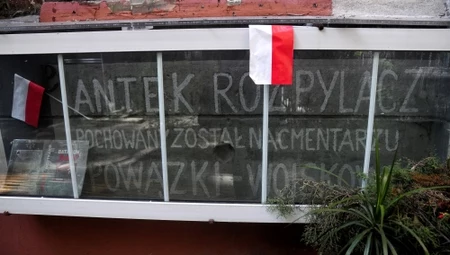 ANTEK ROZPYLACZ
POCHOWANY ZOSTAŁ NA CMENTARZU
POWĄZKI WOJSKOWE